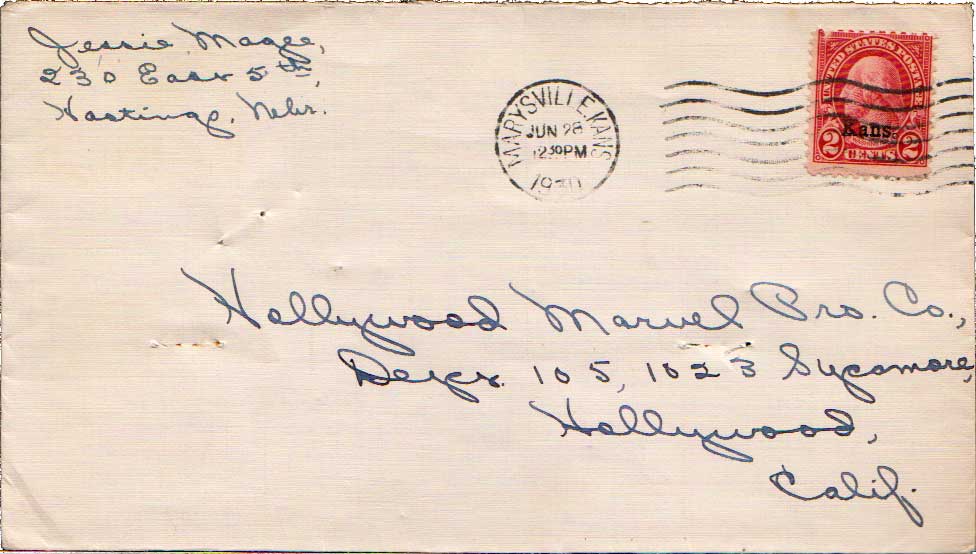 Jessie Magee,
230 East 5th,
Hastings, Nebr.
MARYSVILLE, KANS
JUN 28
12 30 PM
1930
UNITED STATES POSTAGE
Kans.
2 CENTS 2
Hollywood Marvel Pro. Co.,
Dept. 105, 1023 Sycamore,
Hollywood,
Calif.